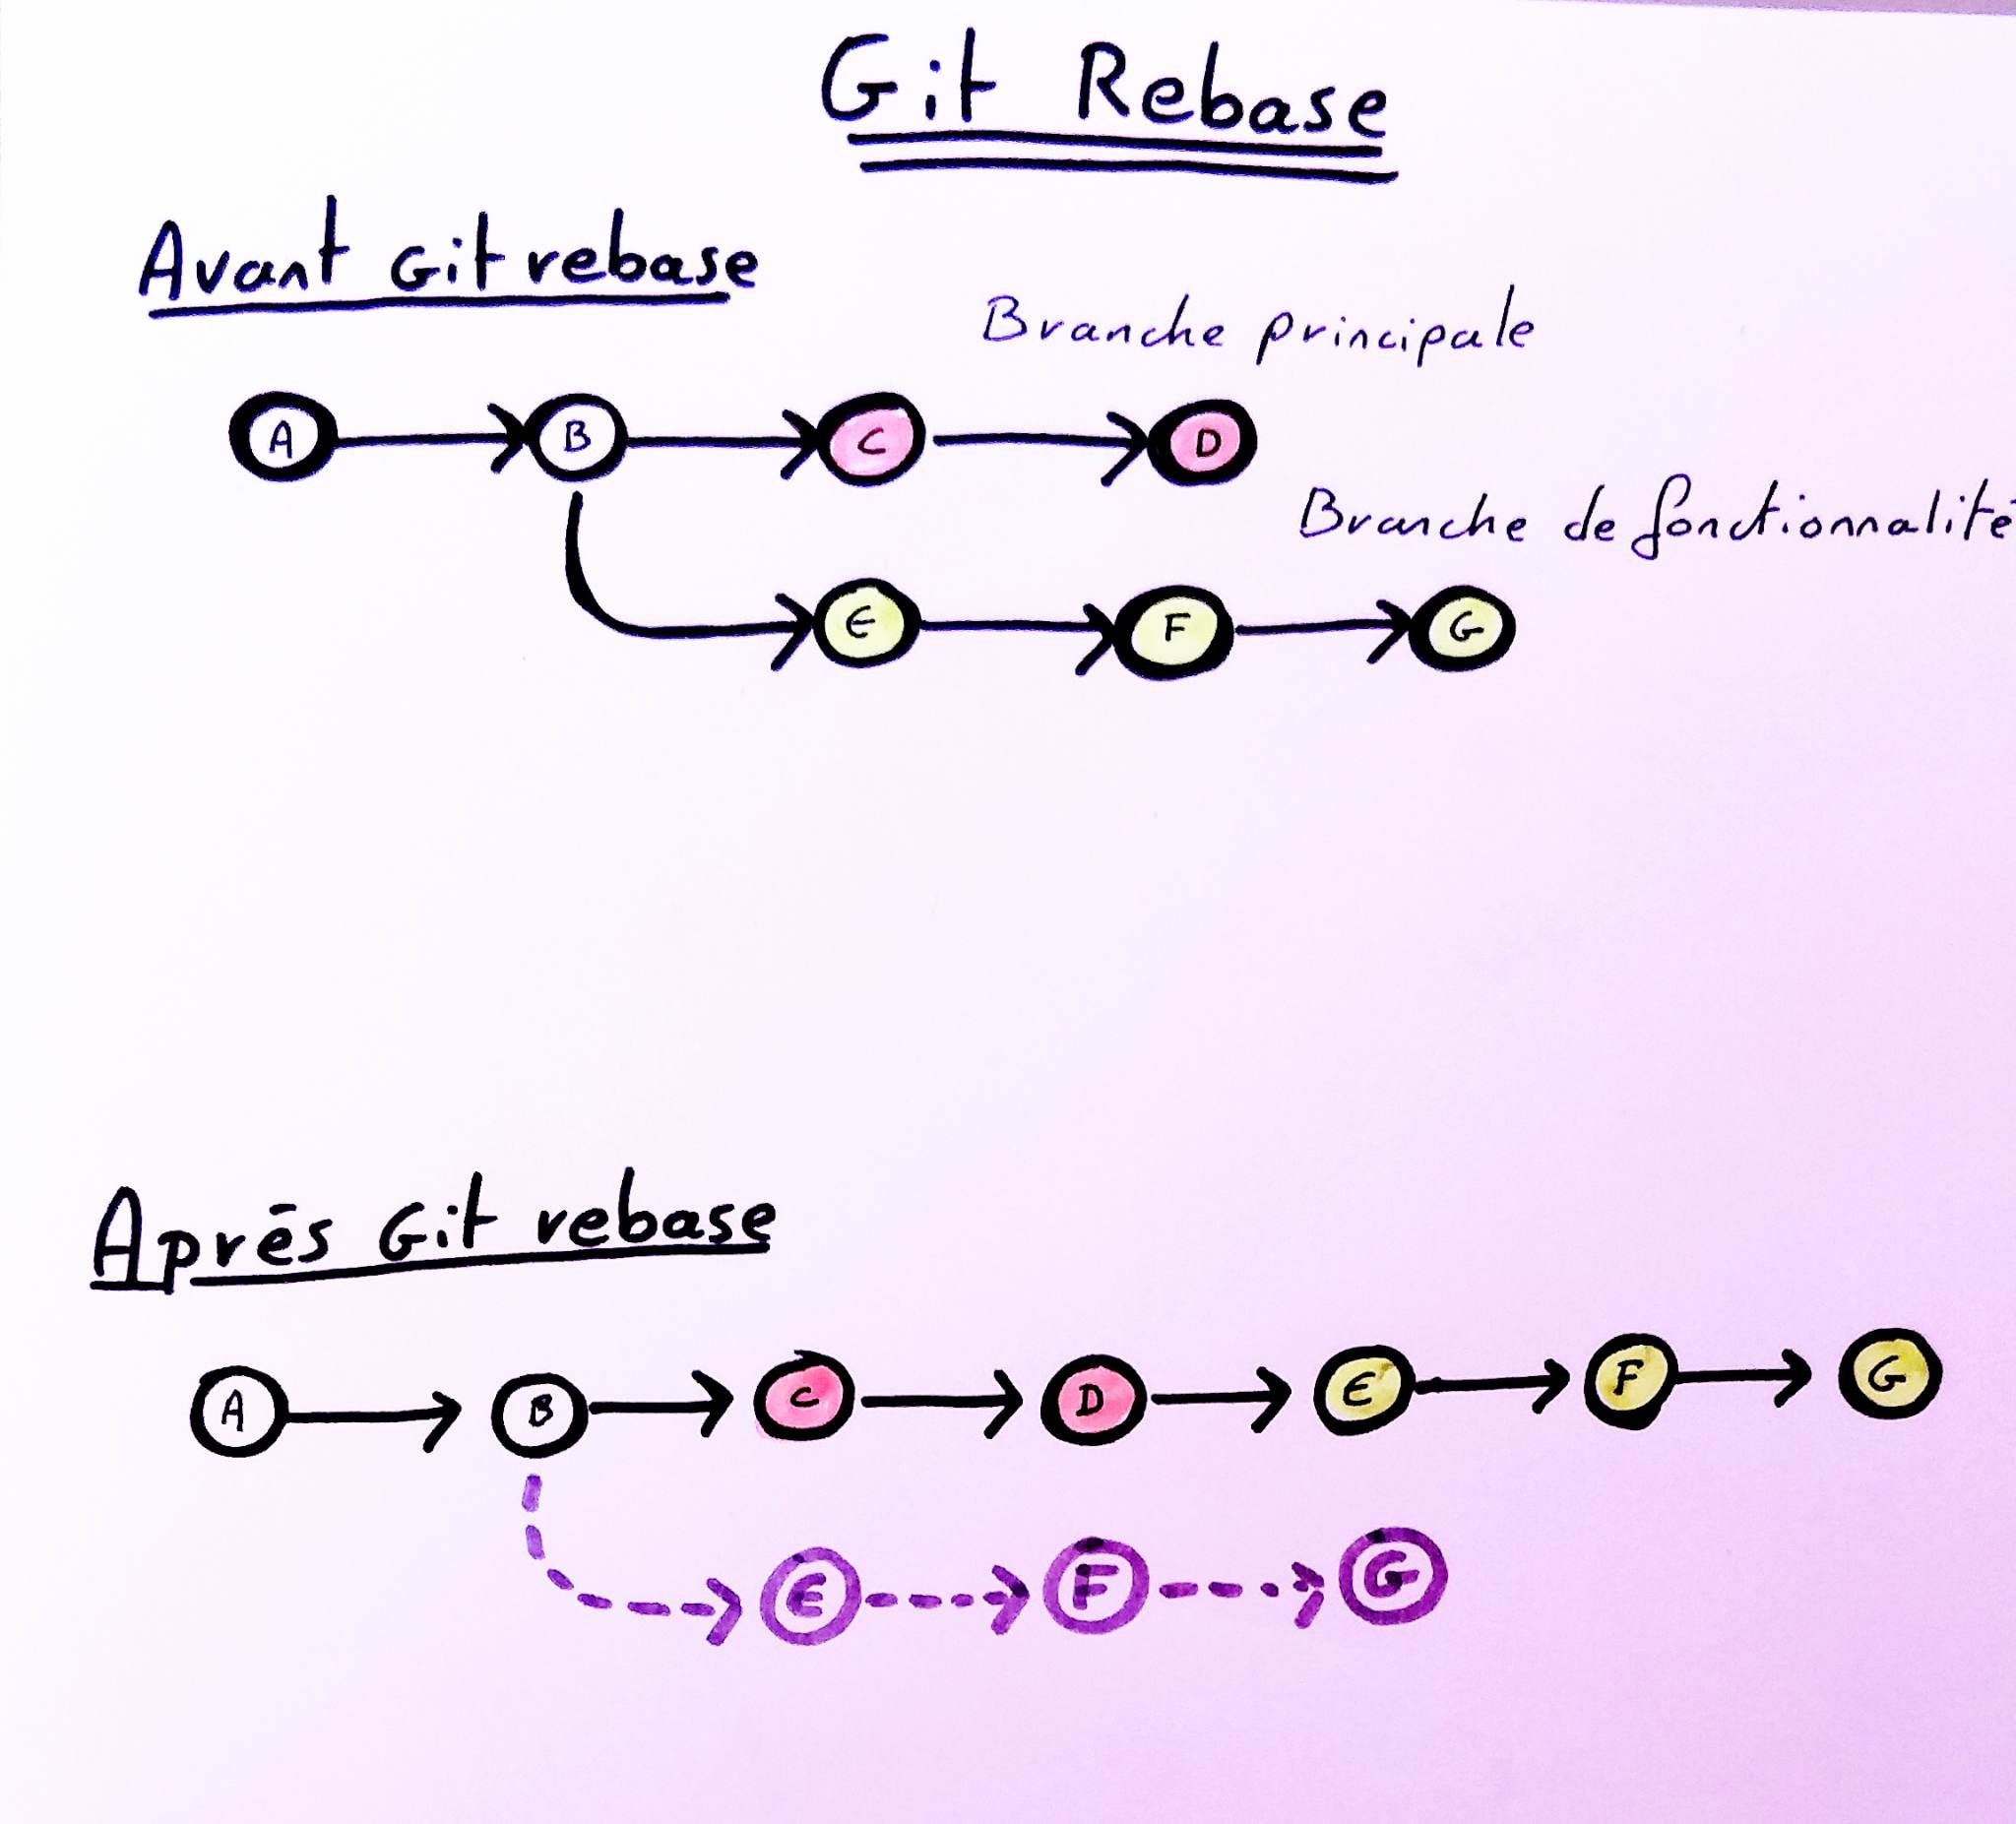 Git Rebase
Avant Git rebase
Branche principale
A B C D
Branche de fonctionnalité
E F G
Après Git rebase
A B C D E F G
E F G